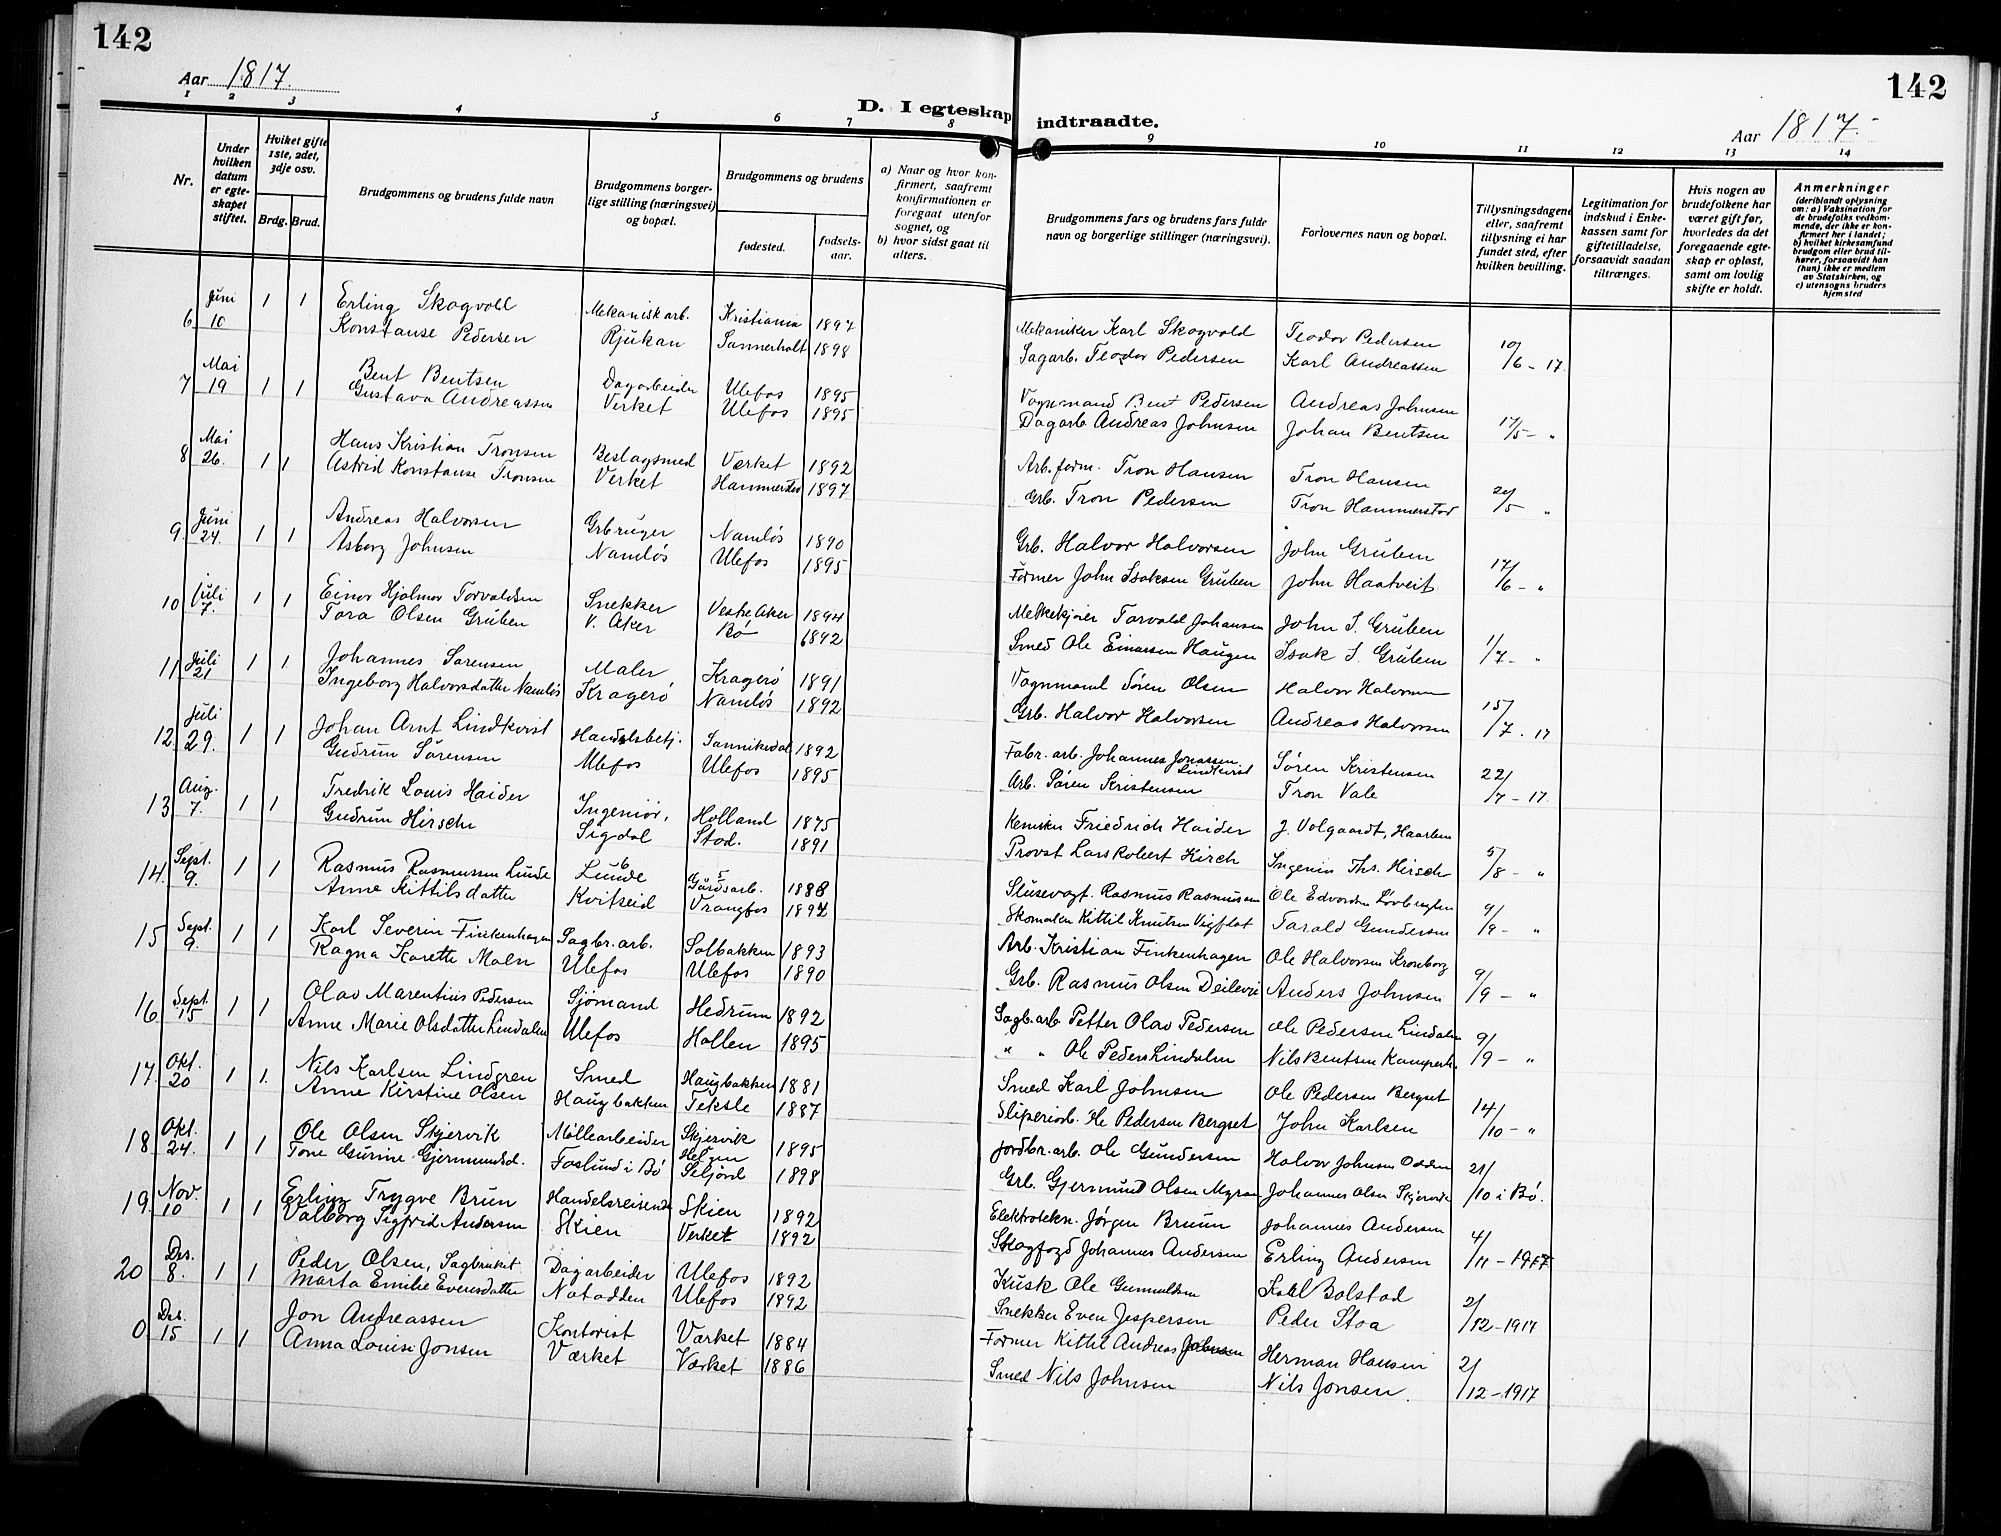 142
142
Aar 1817.
Aar 1817.
D. I egteskap indtraadte.
1 2 3 4 5 6 7 8 9 10 11 12 13 14
Nr.
Under hvilken datum er egteskapet stiftet.
Hviket gifte 1ste, 2det, 3dje osv.
Brdg. Brud.
Brudgommens og brudens fulde navn
Brudgommens borgerlige stilling (næringsvei) og bopæl.
Brudgommens og brudens
fødested.
fødselsaar.
a) Naar og hvor konfirmert, saafremt konfirmationen er foregaat utenfor sognet, og
b) hvor sidst gaat til alters.
Brudgommens fars og brudens fars fulde navn og borgerlige stillinger (næringsvei).
Forlovernes navn og bopæl.
Tillysningsdagene eller, saafremt tillysning ei har fundet sted, efter hvilken bevilling.
Legitimation for indskud i Enkekassen samt for giftetilladelse, forsaavidt saadan tiltrænges.
Hvis nogen av brudefolkene har været gift før, hvorledes da det foregaaende egteskap er opløst, samt om lovlig skifte er holdt.
Anmerkninger (deriblandt oplysning om: a) Vaksination for de brudefolks vedkommende, der ikke er konfirmert her i landet; b) hvilket kirkesamfund brudgom eller brud tilhører, forsaavidt han (hun) ikke er medlem av Statskirken, og c) utensogns bruders hjemsted
6 Juni 10 1 1 Erling Skogvold Mekanisk arb. Kristiania 1897 Mekaniker Karl Skogvold Teodor Pedersen 10/6 - 17.
Konstanse Pedersen Rjukan Sannerholt 1898 Sagarb. Teodor Pedersen Karl Andreassen
7 Mai 19 1 1 Bent Bentsen Dagarbeider Ulefos 1895 Vognmand Bent Pedersen Andreas Johnsen 17/5 - "
Gustava Andreassen Verket Ulefos 1895 Dagarb Andreas Johnsen Johan Bentsen
8 Mai 26. 1 1 Hans Kristian Tronsen Beslagsmed Værket 1892 Arb. form. Tron Hansen Tron Hansen 20/5 "
Astrid Konstanse Tronsen Verket Hammerstad 1897 Grb. Tron Pedersen Tron Hammerstad
9 Juni 24. 1 1 Andreas Halvorsen Grbruger Namløs 1890 Grb. Halvor Halvorsen John Gruben 17/6 - "
Asborg Johnsen Namløs Ulefos 1895 Former John Isaksen Gruben John Haatveit
10 Juli 7. 1 1 Einar Hjalmar Torvaldsen Snekker Vestre Aker 1894 Melkekjører Torvald Johansen John I. Gruben 1/7 - "
Tora Olsen Gruben V. Aker Bø 1892 Smed Ole Einarsen Haugen Isak I. Gruben
11 Juli 21 1 1 Johannes Sørensen Maler Kragerø 1891 Vognmand Søren Olsen Halvor Halvorsen 15/7 - 17
Ingeborg Halvorsdatter Namløs Kragerø Namløs 1892 Grb. Halvor Halvorsen Andreas Halvorsen
12. Juli 29. 1 1 Johan Arnt Lindkvist Handelsbetj. Sannikedal 1892 Fabr. arb. Johannes Jonassen Lindkvist Søren Kristensen 22/7 - 17
Gudrun Sørensen Ulefos Ulefos 1895 Arb. Søren Kristensen Tron Vale
13 Aug. 7. 1 1 Fredrik Louis Haider Ingeniør, Holland 1875 Kemiker Friedrich Haider J. Volgaardt, Haarlem 5/8 - "
Gudrun Hirsch Sigdal Stod. 1891 Provst Lars Robert Kirch Ingeniør Ths. Hirsch
14. Sept. 9. 1 1 Rasmus Rasmussen Lunde Lunde Gårdsarb. 1888 Slusevogt. Rasmus Rasmussen Ole Edvardsen 9/9 - "
Anne Kittilsdatter Kvitseid Vrangfos 1892 Skomaker Kittil Knutsen Vigflot Tarald Gundersen
15 Sept. 9. 1 1 Karl Severin Finkenhagen Sagbr. arb. Solbakken 1893 Arb. Kristian Finkenhagen Ole Halvorsen Kronborg 9/9 - "
Ragna Karette Moen Ulefos Ulefos 1890 Grb. Rasmus Olsen Anders Johnsen
16 Sept. 15 1 1 Olav Marentius Pedersen Sjømand Hedrum 1892 Sagb. arb. Petter Olav Pedersen Ole Pedersen Lindalen 9/9 - "
Anne Marie Olsdatter Lindalen Ulefos Hollen 1895 " " Ole Peders Lindalen Nils Bentsen
17. Okt. 20 1 1. Nils Karlsen Lindgren Smed Haugbakken 1881 Smed Karl Johnsen Ole Pedersen Bergset 14/10 - "
Anne Kirstine Olsen Haugbakken Teksle 1887 Sliperiarb. Ole Pedersen Bergset John Karlsen
18 Okt. 24. 1 1 Ole Olsen Skjervik Møllearbeider Skjervik Helgen 1895 Jordbr. arb. Ole Gundersen Halvor Johnsen Odden 21/10 i Bø.
Tone Gurine Gjermundsd. Foslund i Bø Seljord 1898 Grb. Gjermund Olsen Myran Johannes Olsen Skjervik
19. Nov. 10 1 1 Erling Trygve Brun Handelsreisende Skien 1892 Elektrotekn. Jørgen Bruun Johannes Andersen 4/11 - 1917
Valborg Sigfrid Andersen Skien Verket 1892 Skogfogd Johannes Andersen Erling Andersen
20 Des. 8. 1 1 Peder Olsen, Sagbruket Dagarbeider Ulefos 1892 Kusk Ole Gunnuldsen Karl Bolstad 2/12 - 1917
Marta Emilie Evensdatter Notodden Ulefos 1892 Snekker Even Jespersen Peder Stoa
0 Des. 15 1 1 Jon Andreassen Kontorist Værket 1884 Former Kittil Andreas Johnsen Herman Hansen 2/12 - 1917
Anna Louise Jonsen Værket Værket 1886 Smed Nils Johnsen Nils Jonsen.